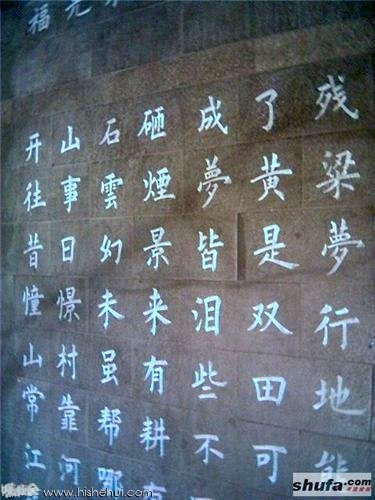 福元
开山石砸成了残
往事雲煙夢黄梁
昔日幻景皆是夢
憧憬未来泪双行
山村虽有些田地
常靠帮耕不可能
江河哪
www.hishehui.com
shufa.com